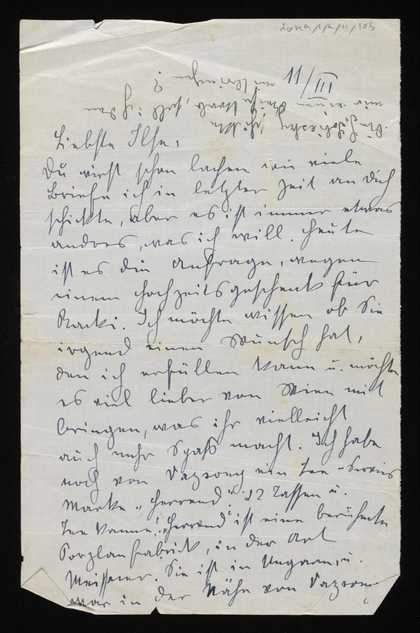 11/III
Liebste Ilse,
Du wirst schon lachen wie viele
Briefe ich in letzter Zeit an Dich
schickte, aber es ist immer etwas
andres, was ich will. Heute
ist es die Anfrage, wegen
einem Hochzeitsgeschenk für
Ich möchte wissen ob Sie
irgend einen Wunsch hat,
den ich erfüllen kann u. möchte
es viel lieber von Wien mit
bringen, was ihr vielleicht
auch mehr Spaß macht. Ich habe
noch von ein Tee-Servis
Marke „Herrend“ 12 Tassen u.
Tee Kanne. „Herrend“ ist eine berühmte
Porzlan fabrik, in der Art
Meissener. Sie ist in Ungarn, u.
war in der Nähe von